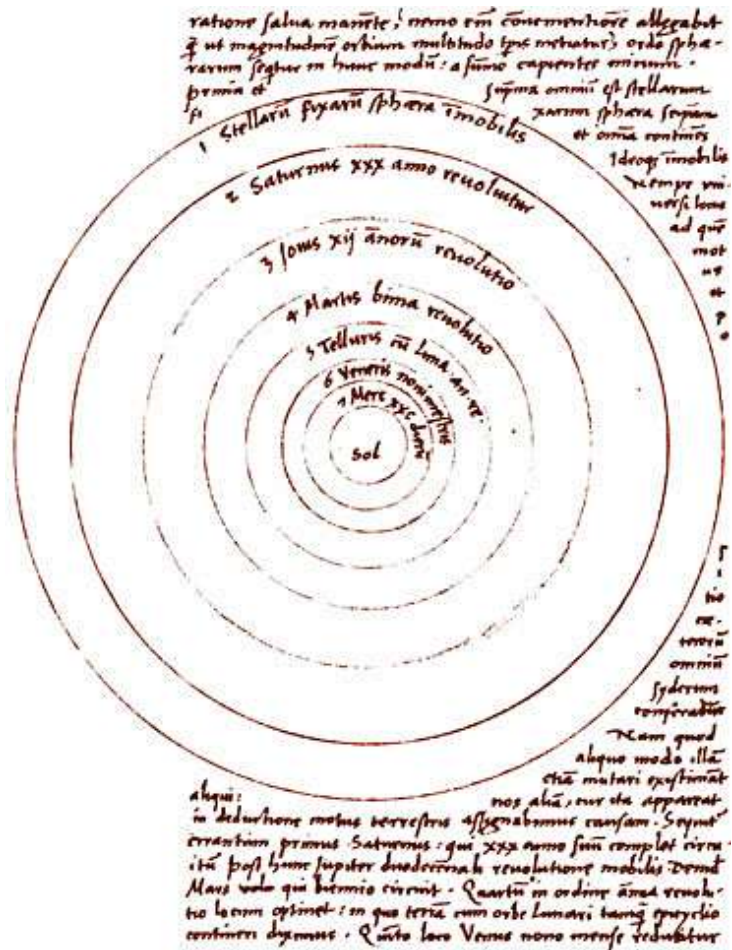 ratione salua manēte, nemo em̄ cōuenientiorē allegabit
q̄ ut magnitudinē orbium multitudo tp̄is metiatur, ordo sphæ-
rarum seqtur in hunc modū: a sūmo capientes inicium.
prima et suprema omniū est stellarum
fi xarum sphæra seipsam
et omnia continēs
Ideoqȝ īmobilis
nempe uni-
uersi locus
ad quē
mot
us
et
p
o
1 Stellarū fixarū sphæra īmobilis
2 Saturnus xxx anno reuoluitur
3 Iouis xij annorū reuolutio
4 Martis bima reuolutio
5 Telluris cū luna an. re.
6 Veneris nonimestris
7 Merc xxc dierū
Sol
s
i
tio
cæ-
terorū
omniū
syderum
conferatur
Nam quod
aliquo modo illā
etiā mutari existimāt
aliqui: nos aliā, cur ita appareat
in deductione motus terrestris assignabimus causam. Sequit
errantium primus Saturnus: qui xxx anno suū complet circu
itū post hunc Iupiter duodecennali reuolutione mobilis. Deinde
Mars uolo qui biennio circuit. Quartū in ordine annua reuolu-
tio locum optinet: in quo terrā cum orbe lunari tamq̄ epicyclio
contineri diximus. Quinto loco Venus nono mense reducitur